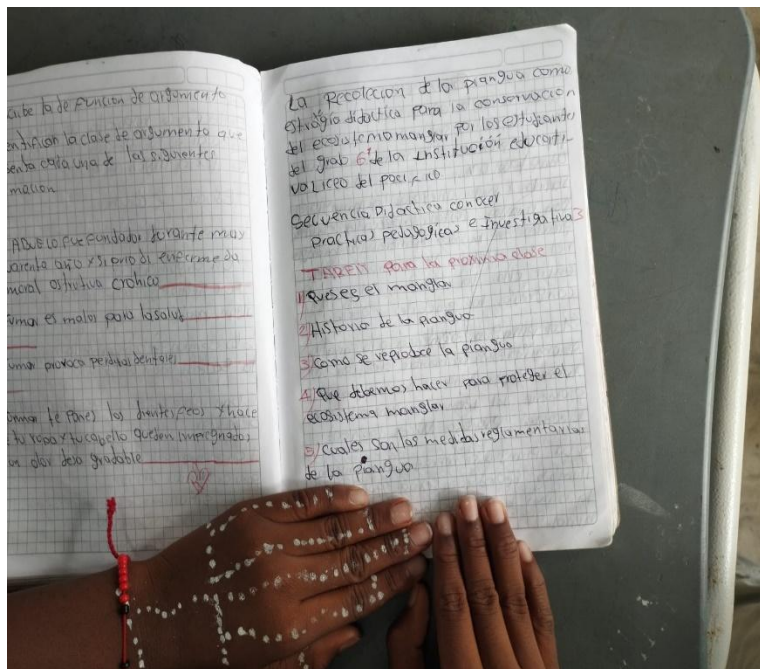 cribe la de función de argumento
entifican la clase de argumento que
senta cada una de las siguientes
mación
ABUELO fue fundador durante may
cuarenta año x siprio di enferme da
monal ostrutiva cronico
umar es malos para la salut
umar provoca perditas dentales
umar te pones los dientes feos x hace
tu ropa x tu cabello queden impregnados
un olor desa gradable
La Recolección de la piangua como
estrategia didactica para la conservación
del ecosistema manglar por los estudiantes
del grado 6° de la institución educati-
va Liceo del pacifico
Secuencia Didactica conocer
practicas pedagogicas e Investigativa 3
TAREA para la proxima clase
1) Que es el manglar
2) Historia de la piangua
3) Como se reproduce la piangua
4) Que debemos hacer para proteger el
ecosistema manglar
5) Cuales son las medidas reglamentarias
de la piangua